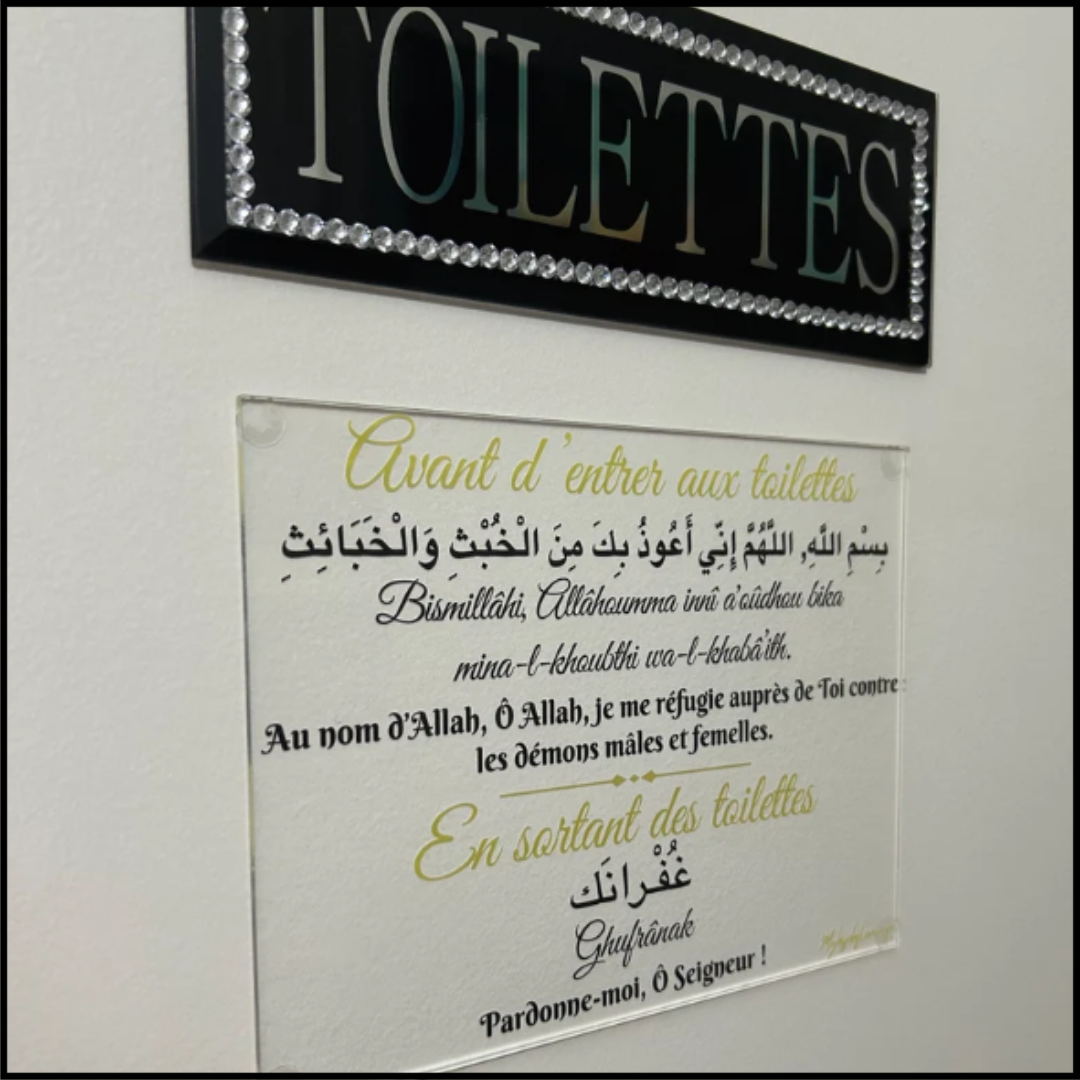 TOILETTES
Avant d'entrer aux toilettes
بِسْمِ اللَّهِ, اللَّهُمَّ إِنِّي أَعُوذُ بِكَ مِنَ الْخُبْثِ وَالْخَبَائِثِ
Bismillâhi, Allâhoumma innî a'oûdhou bika
mina-l-khoubthi wa-l-khabâ'ith.
Au nom d'Allah, Ô Allah, je me réfugie auprès de Toi contre :
les démons mâles et femelles.
En sortant des toilettes
غُفْرانَك
Ghufrânak
Pardonne-moi, Ô Seigneur !